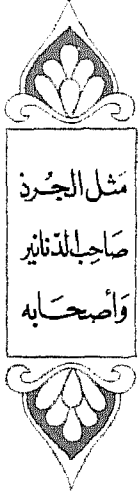 مَثل الجرذ
صَاحِب الدّنانير
وَأصحَابه